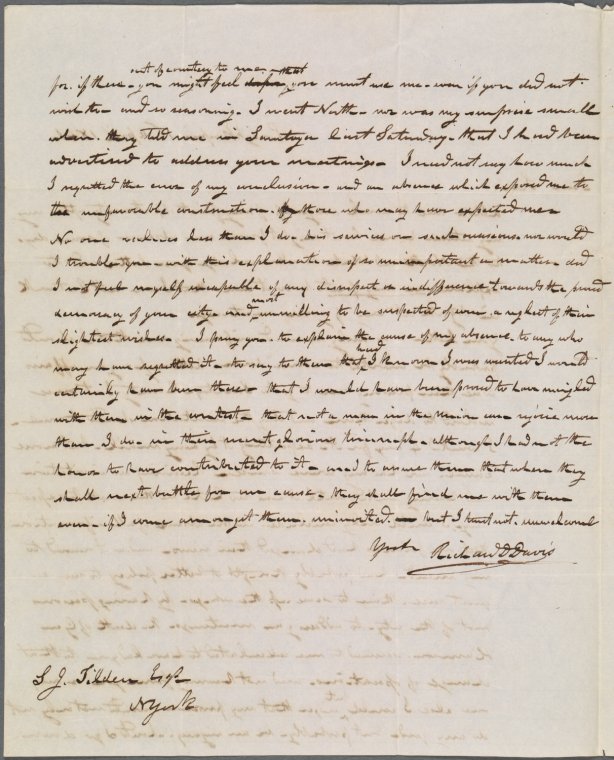 out of courtesy to me - that
for. if there - you might feel you must use me - even if you did not
wish to - and so reasoning. I went North - nor was my surprise small
when. they told me in Saratoga last Saturday - that I had been
advertised to address your meetings - I need not say how much
I regretted the error of my conclusion - and an absence which exposed me to
the unfavourable construction. of those who may have expected me -
No one values less than I do his services on such occasions nor would
I trouble you - with this explanation of so unimportant a matter - did
I not feel myself incapable of any disrespect or indifference towards the proud
democracy of your city - and most unwilling to be suspected of even a neglect of their
slightest wishes - I pray you - to explain the cause of my absence. to any who
may have regretted it - to say to them that, had I known I was wanted I would
certainly have been there - that I would have been proud to have mingled
with them in the contest - that not a man in the union can rejoice more
than I do in their recent glorious triumph - although I had not the
honor to have contributed to it - and to assure them that when they
shall next battle for our cause - they shall find me with them
even - if I come amongst them. uninvited. - but I trust not. unwelcomed
Yours Richard D Davis
S J. Tilden Esqr
N York